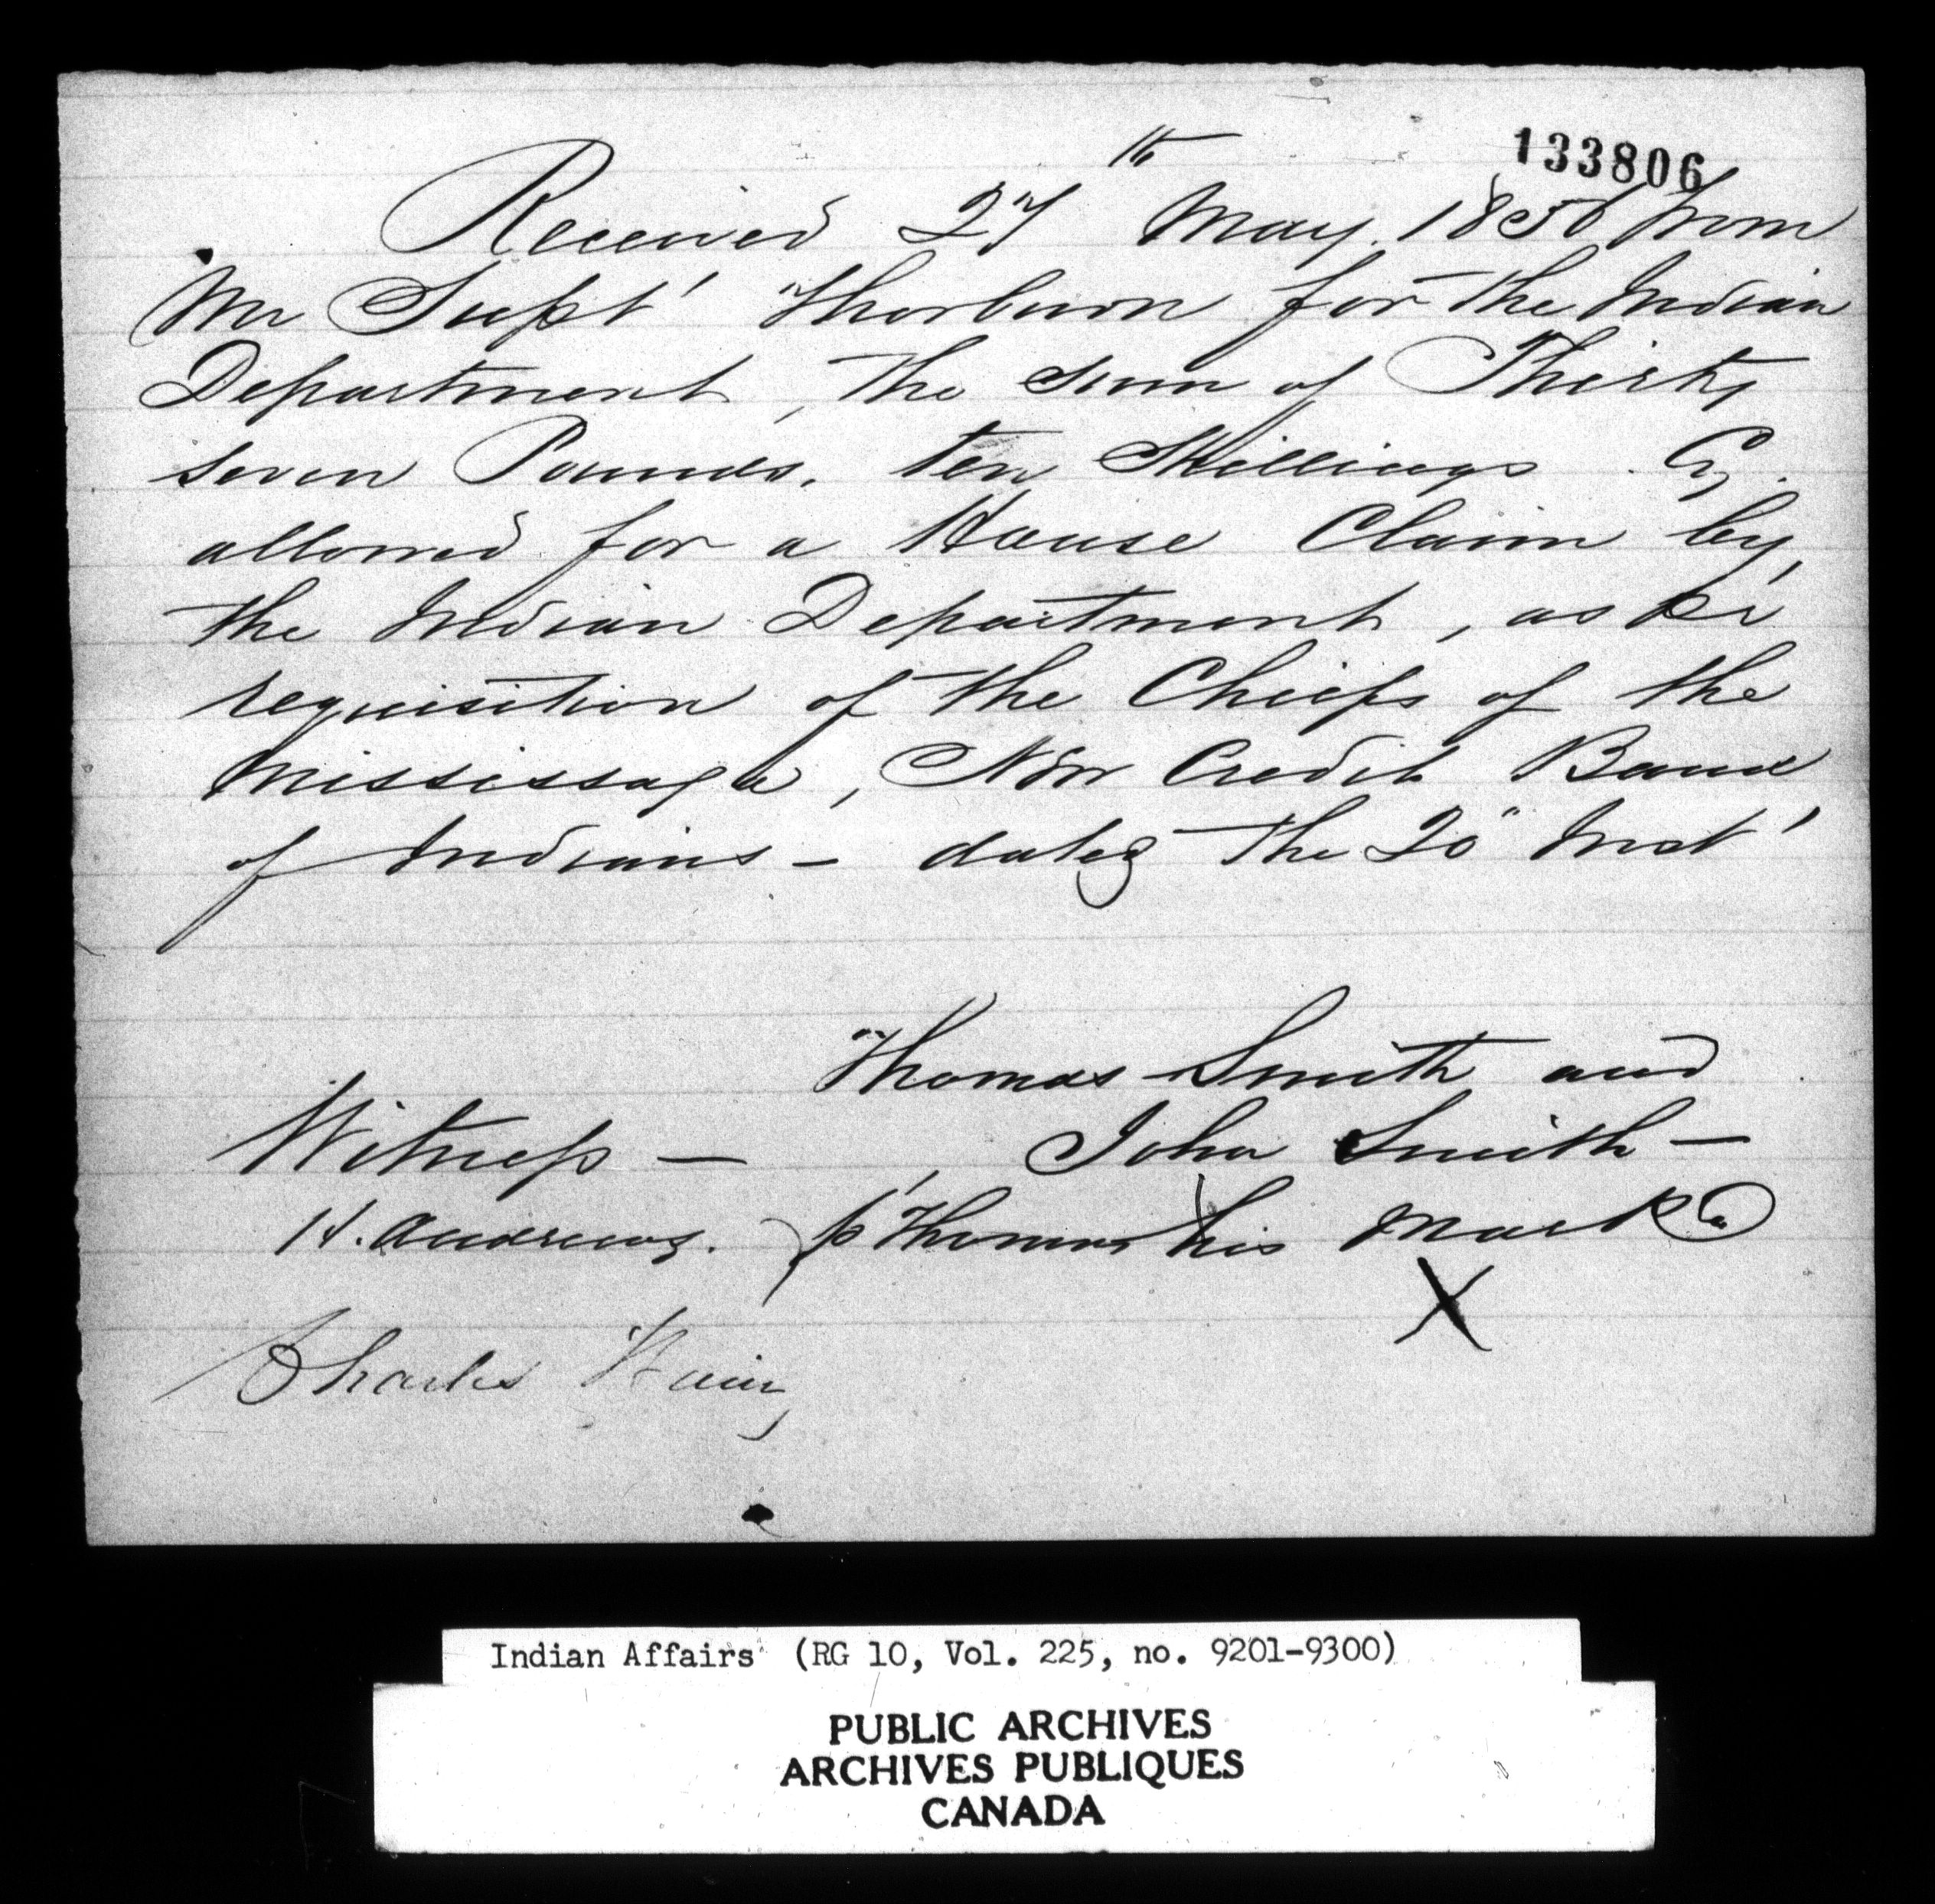 133806
Received 27th May, 1856 from
Mr Supt' Thorburn for the Indian
Department, the sum of Thirty
seven Pounds, ten Shillings Cy.
allowed for a House Claim by
the Indian Department, as per
requisition of the Chiefs of the
Mississaga, New Credit Band
of Indians – dated the 20" Inst'
Thomas Smith and
Witness — John Smith —
H. Andrews. p' Thomas his Mark
X
Charles
Indian Affairs (RG 10, Vol. 225, no. 9201-9300)
PUBLIC ARCHIVES
ARCHIVES PUBLIQUES
CANADA